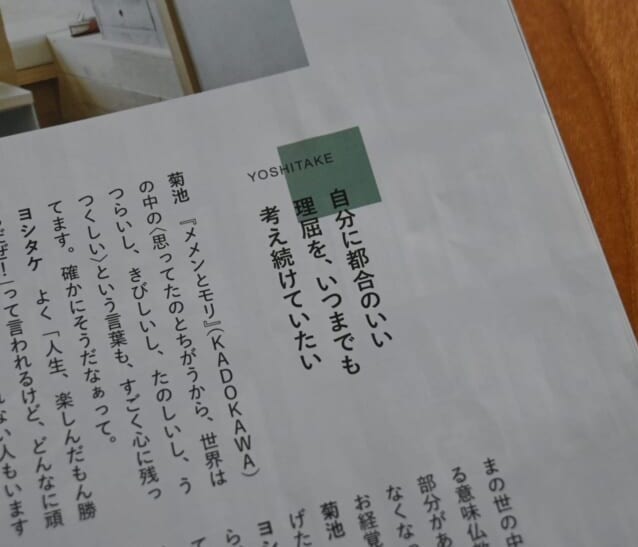 YOSHITAKE
自分に都合のいい
理屈を、いつまでも
考え続けていたい
菊池 『メメンとモリ』(KADOKAWA)
の中の〈思ってたのとちがうから、世界は
つらいし、きびしいし、たのしいし、う
つくしい〉という言葉も、すごく心に残っ
てます。確かにそうだなぁって。
ヨシタケ よく「人生、楽しんだもん勝
だぜ!」って言われるけど、どんなに頑
ない人もいます
まの世の中
る意味仏教
部分があ
なくな
お経
菊池
げた
ヨシ
ら
て